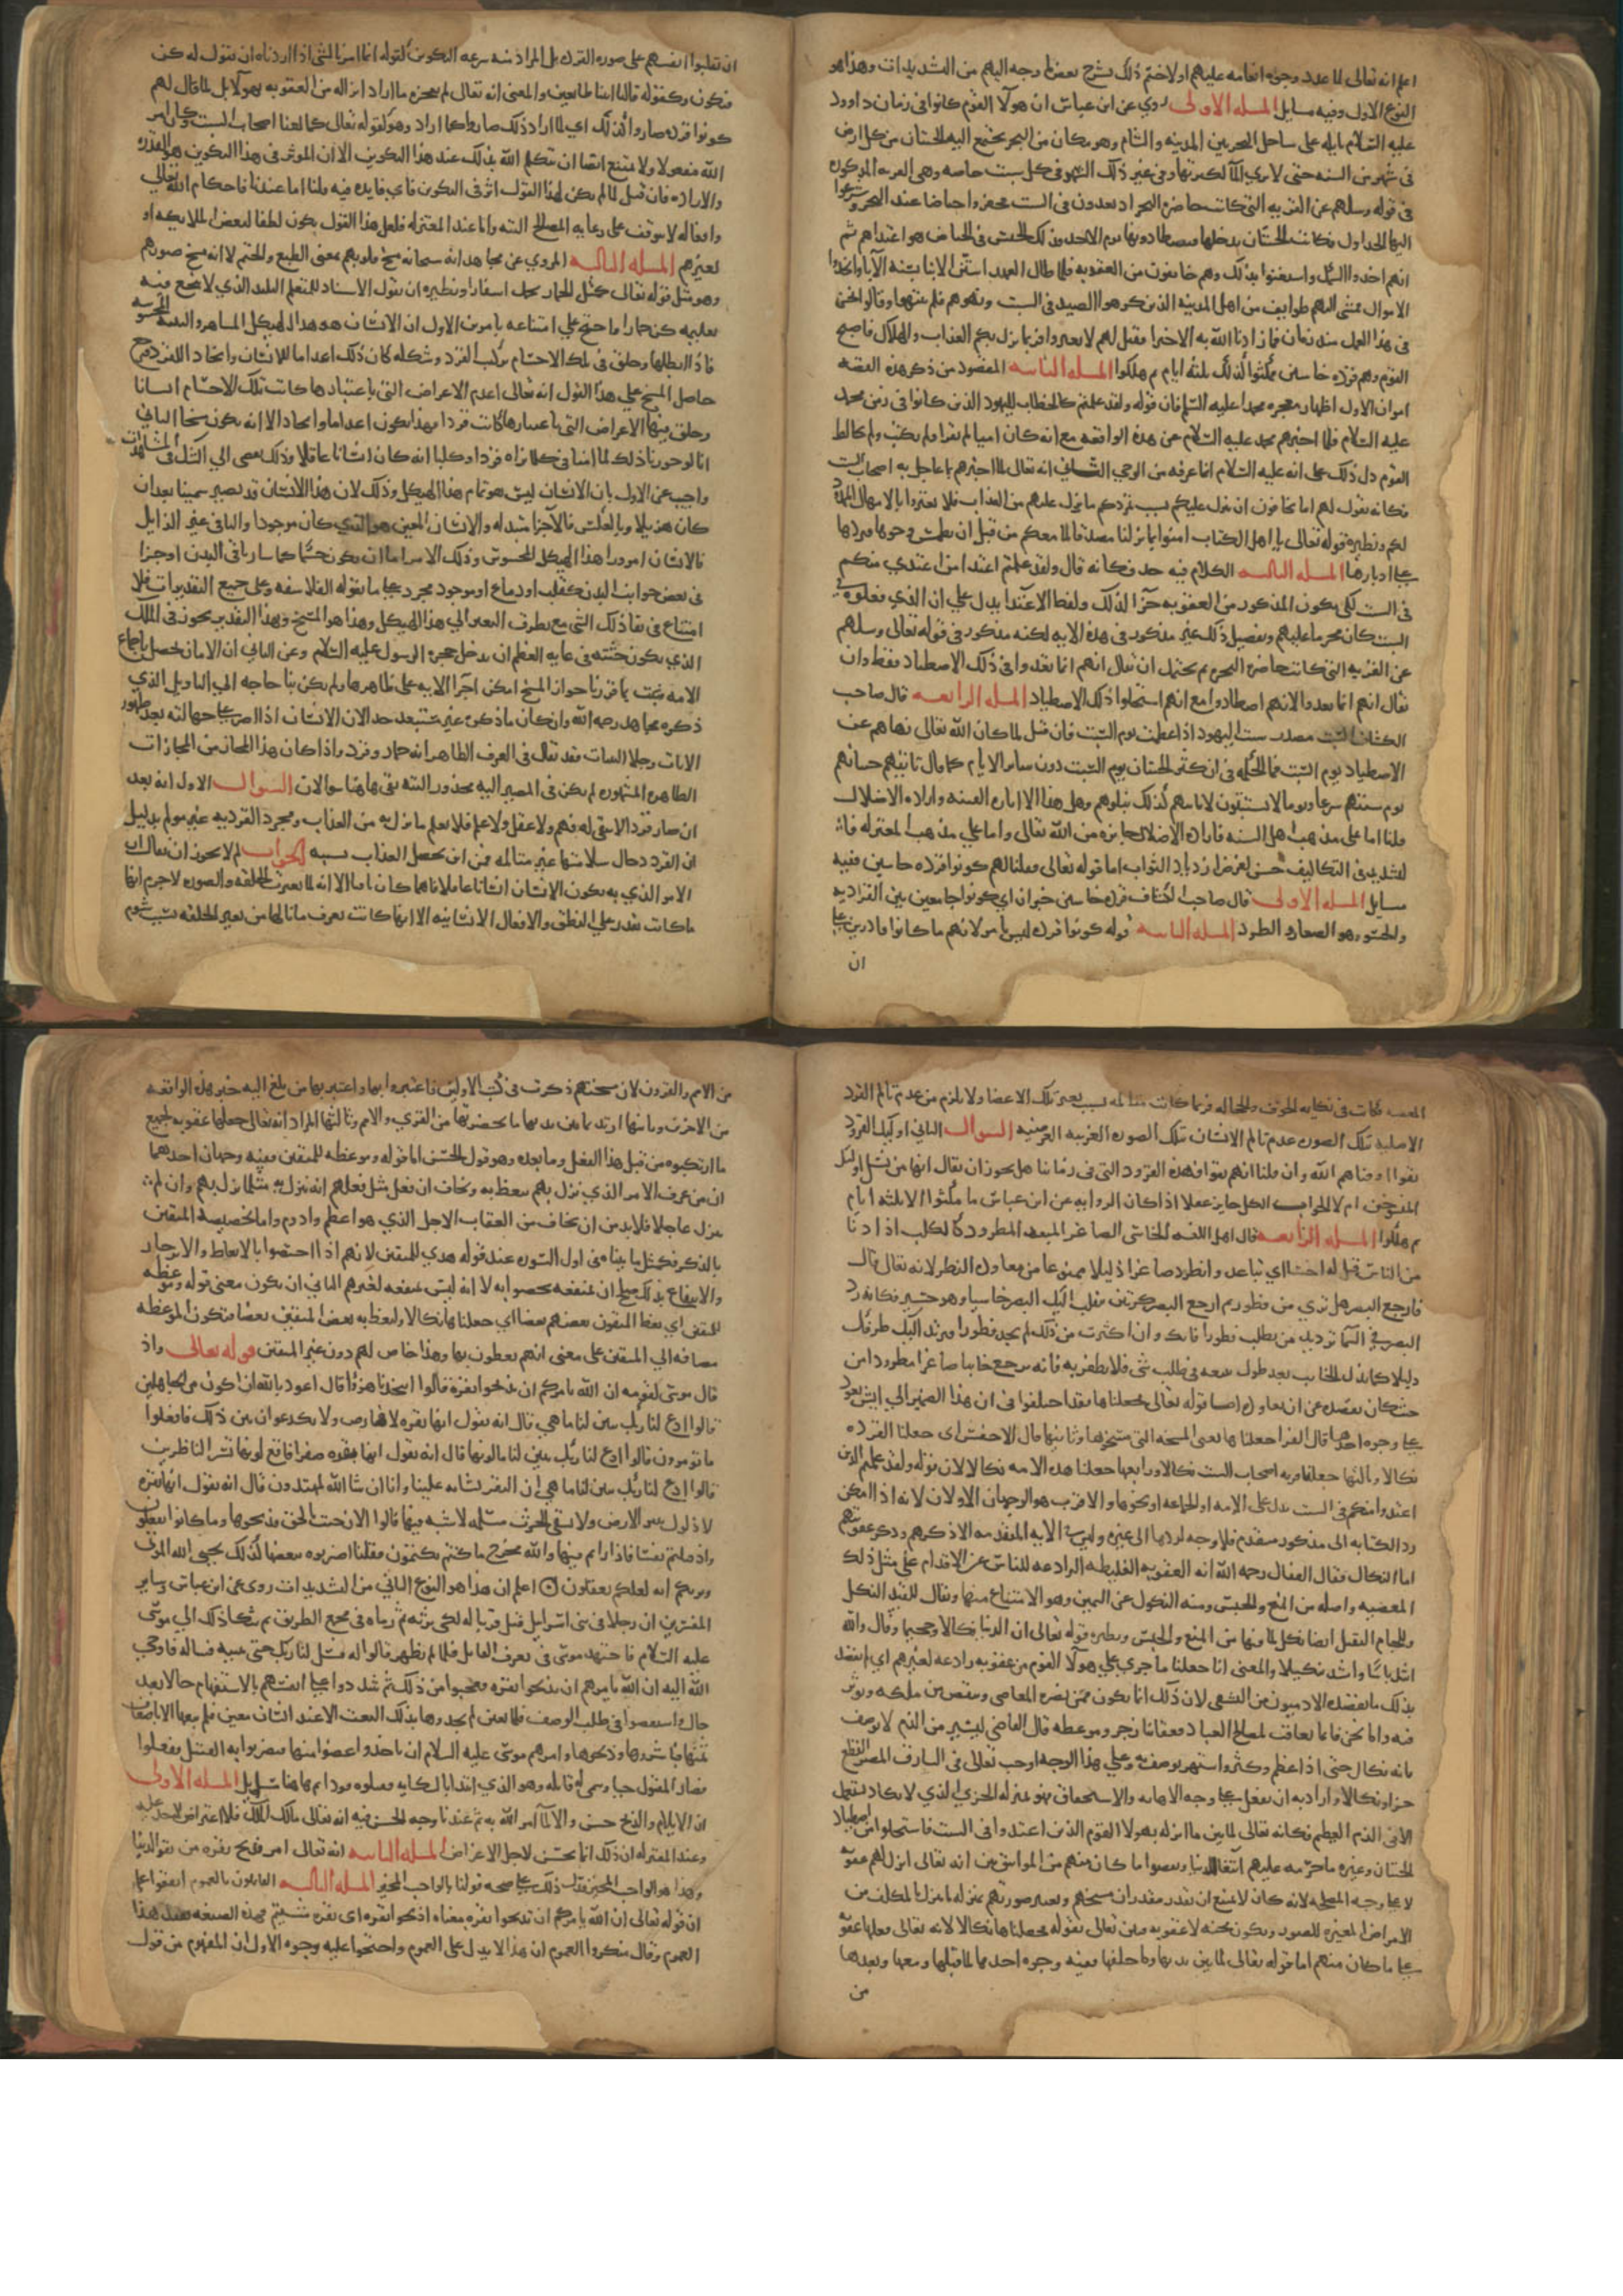 اعلم انه تعالى لما عدد وجوه انعامه عليهم اولا ختم ذلك بشرح بعض ما وجه اليهم من التشديدات وهذا هو
النوع الاول وفيه مسايل المسله الاولى روي عن ابن عباس ان هولا القوم كانوا في زمان داوود
عليه السلام بايله على ساحل البحر بين المدينه والشام وهو مكان من البحر يجتمع اليه الحيتان من كل ارض
في شهر من السنه حتى لا يرى الماء لكثرتها وفي غير ذلك الشهر في كل سبت خاصه وهي القريه المذكوره
في قوله وسلهم عن القريه التي كانت حاضره البحر اذ يعدون في السبت فحفروا حياضا عند البحر وشرعوا
اليها الجداول فكانت الحيتان تدخلها فيصطادونها يوم الاحد فذلك الحبس في الحياض هو اعتداوهم ثم
انهم اخذوا السمك واستغنوا بذلك وهم خايفون من العقوبه فلما طال العهد استن الابنا بسنه الآبا واتخذوا
الاموال فمشى اليهم طوايف من اهل المدينه الذين كرهوا الصيد في السبت ونهوهم فلم ينتهوا وقالوا نحن
في هذا العمل منذ زمان فما زادنا الله به الا خيرا فقيل لهم لا تغتروا فربما نزل بكم العذاب والهلاك فاصبح
القوم وهم قرده خاسين فمكثوا كذلك ثلثه ايام ثم هلكوا المسله الثانيه المقصود من ذكر هذه القصه
امران الاول اظهار معجزه محمد عليه السلم فان قوله ولقد علمتم كالخطاب لليهود الذين كانوا في زمن محمد
عليه السلام فلما اخبرهم محمد عليه السلام عن هذه الواقعه مع انه كان اميا لم يقرا ولم يكتب ولم يخالط
القوم دل ذلك على انه عليه السلام انما عرفه من الوحي الثاني انه تعالى لما اخبرهم بما عاجل به اصحاب السبت
فكانه يقول لهم اما تخافون ان ينزل عليكم بسبب تمردكم ما نزل عليهم من العذاب فلا تغتروا بالامهال الممدود
لكم ونظيره قوله تعالى يا اهل الكتاب امنوا بما نزلنا مصدقا لما معكم من قبل ان نطمس وجوها فنردها
على ادبارها المسله الثالثه الكلام فيه حذف كانه قال ولقد علمتم اعتدا من اعتدى منكم
في السبت لكي يكون المذكور من العقوبه جزا لذلك ولفظ الاعتدا يدل على ان الذي فعلوه في
السبت كان محرما عليهم وتفصيل ذلك غير مذكور في هذه الايه لكنه مذكور في قوله تعالى وسلهم
عن القريه التي كانت حاضره البحر ثم يحتمل ان يقال انهم انما تعدوا في ذلك الاصطياد فقط وان
يقال انهم انما تعدوا لانهم اصطادوا مع انهم استحلوا ذلك الاصطياد المسله الرابعه قال صاحب
الكشاف السبت مصدر سبتت اليهود اذا عظمت يوم السبت فان قيل لما كان الله تعالى نهاهم عن
الاصطياد يوم السبت فما الحكمه في ان كثر الحيتان يوم السبت دون ساير الايام كما قال تاتيهم حيتانهم
يوم سبتهم شرعا ويوم لا يسبتون لا تاتيهم كذلك نبلوهم وهل هذا الا اثاره الفتنه واراده الاضلال
قلنا اما على مذهب اهل السنه فاراده الاضلال جايزه من الله تعالى واما على مذهب المعتزله فان
التشديد في التكاليف حسن لغرض ازدياد الثواب اما قوله تعالى فقلنا لهم كونوا قرده خاسين ففيه
مسايل المسله الاولى قال صاحب الكشاف قرده خاسين خبران اي كونوا جامعين بين القرديه
والخسو وهو الصغار والطرد المسله الثانيه قوله كونوا قرده ليس بامر لانهم ما كانوا قادرين على
ان
ان يقلبوا انفسهم على صوره القرده بل المراد منه سرعه التكوين كقوله انما امرنا لشي اذا اردناه ان نقول له كن
فيكون وكقوله قالتا اتينا طايعين والمعنى انه تعالى لم يعجزه ما اراد انزاله من العقوبه بهولا بل لما قال لهم
كونوا قرده صاروا كذلك اي لما اراد ذلك صاروا كما اراد وهو كقوله تعالى كما لعنا اصحاب السبت وكان امر
الله مفعولا ولا يمتنع ايضا ان يتكلم الله بذلك عند هذا التكوين الا ان الموثر في هذا التكوين هو القدره
والاراده فان قيل لما لم يكن لهذا القول اثر في التكوين فاي فايده فيه قلنا اما عندنا فاحكام الله تعالى
وافعاله لا تتوقف على رعايه المصالح البته واما عند المعتزله فلعل هذا القول يكون لطفا لبعض الملايكه او
لغيرهم المسله الثالثه المروي عن مجاهد انه سبحانه مسخ قلوبهم بمعنى الطبع والختم لا انه مسخ صورهم
وهو مثل قوله تعالى كمثل الحمار يحمل اسفارا ونظيره ان يقول الاستاد للمتعلم البليد الذي لا ينجع فيه
تعليمه كن حمارا واحتج على امتناعه بامرين الاول ان الانسان هو هذا الهيكل المشاهد والبنيه المحسوسه
فاذا ابطلها وخلق في تلك الاجسام تركيب القرد وشكله كان ذلك اعداما للانسان وايجادا للقرد فيرجع
حاصل المسخ على هذا القول انه تعالى اعدم الاعراض التي باعتبارها كانت تلك الاجسام انسانا
وخلق فيها الاعراض التي باعتبارها كانت قردا فهذا يكون اعداما وايجادا لا انه يكون مسخا الثاني
انا لو جوزنا ذلك لما امنا في كل ما نراه قردا وكلبا انه كان انسانا عاقلا وذلك يفضي الى الشك في المشاهدات
واجيب عن الاول بان الانسان ليس هو تمام هذا الهيكل وذلك لان هذا الانسان قد يصير سمينا بعد ان
كان هزيلا وبالعكس فالاجزا متبدله والانسان المعين هو الذي كان موجودا والباقي غير الزايل
فالانسان امر ورا هذا الهيكل المحسوس وذلك الامر اما ان يكون جسما كما ساريا في البدن او جزا
في بعض جوانب البدن كقلب او دماغ او موجود مجرد على ما يقوله الفلاسفه وعلى جميع التقديرات فلا
امتناع في بقا ذلك الشي مع تطرق التغير الى هذا الهيكل وهذا هو المسخ وبهذا التقدير يجوز في الملك
الذي يكون جثته في غايه العظم ان يدخل حجره الرسول عليه السلام وعن الثاني ان الامان يحصل باجماع
الامه ثبت بما قررنا جواز المسخ امكن اجرا الايه على ظاهرها ولم يكن بنا حاجه الى التاويل الذي
ذكره مجاهد رحمه الله وان كان ما ذكره غير مستبعد جدا لان الانسان اذا اصر على جهالته بعد ظهور
الايات وجلا البينات فقد يقال في العرف الظاهر انه حمار وقرد واذا كان هذا المجاز من المجازات
الظاهره المشهوره لم يكن في المصير اليه محذور البته بقي هاهنا سوالان السوال الاول انه بعد
ان صار قردا لا يبقى له فهم ولا عقل ولا علم فلا يعلم ما نزل به من العذاب ومجرد القرديه غير مولم بدليل
ان القرد حال سلامتها غير متالمه فمن اين يحصل العذاب بسببه الجواب لم لا يجوز ان يقال ان
الامر الذي به يكون الانسان انسانا عاقلا فاهما كان باقيا الا انه لما تغيرت الخلقه والصوره لا جرم انها
ما كانت تقدر على النطق والافعال الانسانيه الا انها كانت تعرف ما نالها من تغير الخلقه بسبب شوم
المعصيه فكانت في نهايه الخوف والخجاله فربما كانت متالمه بسبب تغير تلك الاعضا ولا يلزم من عدم تالم القرد
الاصليه بتلك الصوره عدم تالم الانسان بتلك الصوره الغريبه العرضيه السوال الثاني اوليك القرود
بقوا او افناهم الله وان قلنا انهم بقوا فهذه القرود التي في زماننا هل يجوز ان يقال انها من نسل اوليك
الممسوخين ام لا الجواب الكل جايز عقلا اذ كان الروايه عن ابن عباس ما مكثوا الا ثلثه ايام
ثم هلكوا المسله الرابعه قال اهل اللغه الخاسي الصاغر المبعد المطرود كالكلب اذا دنا
من الناس قيل له اخسا اي تباعد وانطرد صاغرا ذليلا ممنوعا من معاوده النظر لانه تعالى قال
فارجع البصر هل ترى من فطور ثم ارجع البصر كرتين ينقلب اليك البصر خاسيا وهو حسير فكانه رد
البصر في السما ترديد من يطلب فطورا فانك وان اكثرت من ذلك لم تجد فطورا فيرتد اليك طرفك
ذليلا كما يذل الخايب بعد طول سعيه في طلب شي فلا يظفر به فانه يرجع خايبا صاغرا مطرودا من
حيث كان يقصد عن ان يعاوده اما قوله تعالى فجعلناها فقد اختلفوا في ان هذا الضمير الى ايش يعود
على وجوه احدها قال الفرا جعلناها يعني المسخه التي مسخوها وثانيها قال الاخفش اي جعلنا القرده
نكالا وثالثها جعلنا قريه اصحاب السبت نكالا ورابعها جعلنا هذه الامه نكالا لان قوله ولقد علمتم الذين
اعتدوا منكم في السبت يدل على الامه او الجماعه او نحوها والاقرب هو الوجهان الاولان لانه اذا امكن
رد الكنايه الى مذكور متقدم فلا وجه لردها الى غيره وليس في الايه المتقدمه الا ذكرهم وذكر عقوبتهم
اما النكال فقال القفال رحمه الله انه العقوبه الغليظه الرادعه للناس عن الاقدام على مثل ذلك
المعصيه واصله من المنع والحبس ومنه النكول عن اليمين وهو الامتناع منها ويقال للقيد النكل
وللجام الثقيل ايضا نكل لما فيها من المنع والحبس ونظيره قوله تعالى ان لدينا انكالا وجحيما وقال والله
اشد باسا واشد تنكيلا والمعنى انا جعلنا ما جرى على هولا القوم من عقوبه رادعه لغيرهم اي لم يقصد
بذلك ما يقصده الادميون من التشفي لان ذلك انما يكون ممن يضره المعاصي وينقص من ملكه ويوثر
فيه واما نحن فانما نعاقب لمصالح العباد فعقابنا زجر وموعظه قال القاضي اليسير من الذم لا يوصف
بانه نكال حتى اذا عظم وكثر واشتهر يوصف به وعلى هذا الوجه اوجب تعالى في السارق المصر القطع
جزا ونكالا واراد به ان يفعل على وجه الاهانه والاستخفاف فهو بمنزله الخزي الذي لا يكاد يستعمل
الا في الذم العظيم فكانه تعالى لما بين ما انزله بهولا القوم الذين اعتدوا في السبت واستحلوا من اصطياد
الحيتان وغيره ما حرمه عليهم ابتغا الدنيا ونقضوا ما كان منهم من المواثيق بين انه تعالى انزل لهم عقوبه
لا على وجه المصلحه لانه كان لا يمتنع ان تقدر مقدر ان مسخهم وتغيير صورتهم بمنزله ما ينزل بالمكلف من
الامراض المغيره للصور ويكون محنه لا عقوبه فبين تعالى بقوله فجعلناها نكالا انه تعالى فعلها عقوبه
على ما كان منهم اما قوله تعالى لما بين يديها وما خلفها ففيه وجوه احدها لما قبلها ومعها وبعدها
من
من الامم والقرون لان مسخهم ذكرت في كتب الاولين فاعتبروا بها واعتبر بها من بلغ اليه خبر هذه الواقعه
من الاخرين وثانيها اريد بما بين يديها ما يحضرتها من القرى والامم وثالثها المراد انه تعالى جعلها عقوبه لجميع
ما ارتكبوه من قبل هذا الفعل وما بعده وهو قول الحسن اما قوله وموعظه للمتقين ففيه وجهان احدهما
ان من عرف الامر الذي نزل بهم يتعظ به ويخاف ان فعل مثل فعلهم انه ينزل به مثلما نزل بهم وان لم
ينزل عاجلا فلا بد من ان يخاف من العقاب الاجل الذي هو اعظم وادوم واما تخصيصه المتقين
بالذكر فكمثل ما بيناه في اول السوره عند قوله هدى للمتقين لانهم اذا اختصوا بالاتعاظ والانزجار
والانتفاع بذلك صلح ان يخصوا به لانه ليس منفعه لغيرهم الثاني ان يكون معنى قوله وموعظه
للمتقين اي يعظ المتقون بعضهم بعضا اي جعلناها نكالا وليعظ به بعض المتقين بعضا فتكون الموعظه
مضافه الى المتقين على معنى انهم يعظون بها وهذا خاص لهم دون غير المتقين قوله تعالى واذ
قال موسى لقومه ان الله يامركم ان تذبحوا بقره قالوا اتتخذنا هزوا قال اعوذ بالله ان اكون من الجاهلين
قالوا ادع لنا ربك يبين لنا ما هي قال انه يقول انها بقره لا فارض ولا بكر عوان بين ذلك فافعلوا
ما تومرون قالوا ادع لنا ربك يبين لنا ما لونها قال انه يقول انها بقره صفرا فاقع لونها تسر الناظرين
قالوا ادع لنا ربك يبين لنا ما هي ان البقر تشابه علينا وانا ان شا الله لمهتدون قال انه يقول انها بقره
لا ذلول تثير الارض ولا تسقي الحرث مسلمه لا شيه فيها قالوا الان جيت بالحق فذبحوها وما كادوا يفعلون
واذ قتلتم نفسا فاداراتم فيها والله مخرج ما كنتم تكتمون فقلنا اضربوه ببعضها كذلك يحيي الله الموتى
ويريكم اياته لعلكم تعقلون اعلم ان هذا هو النوع الثاني من التشديدات روي عن ابن عباس وساير
المفسرين ان رجلا في بني اسرائيل قتل قريبا له لكي يرثه ثم رماه في مجمع الطريق ثم شكا ذلك الى موسى
عليه السلام فاجتهد موسى في تعرف القاتل فلما لم يظهر قالوا له سل لنا ربك حتى يبينه فساله فاوحى
الله اليه ان الله يامركم ان تذبحوا بقره فتعجبوا من ذلك ثم شددوا على انفسهم بالاستفهام حالا بعد
حال واستقصوا في طلب الوصف فلما تعين لم يجدوها بذلك النعت الا عند انسان معين فلم يبعها الا باضعاف
ثمنها فاشتروها وذبحوها وامرهم موسى عليه السلام ان ياخذوا عضوا منها فيضربوا به القتيل ففعلوا
فصار المقتول حيا وسمى لهم قاتله وهو الذي ابتدا بالشكايه فقتلوه قودا ثم هاهنا مسايل المسله الاولى
ان الايلام والذبح حسن والا لما امر الله به ثم عندنا وجه الحسن فيه انه تعالى مالك الملك فلا اعتراض لاحد عليه
وعند المعتزله ان ذلك انما يحسن لاجل الاعواض المسله الثانيه انه تعالى امر بذبح بقره من بقر الدنيا
وهذا هو الواجب المخير فدل ذلك على صحه قولنا بالواجب المخير المسله الثالثه القايلون بالعموم اتفقوا على
ان قوله تعالى ان الله يامركم ان تذبحوا بقره معناه اذبحوا بقره اي بقره شيتم فهذه الصيغه تفيد هذا
العموم وقال منكروا العموم ان هذا لا يدل على العموم واحتجوا عليه بوجوه الاول ان المفهوم من قول